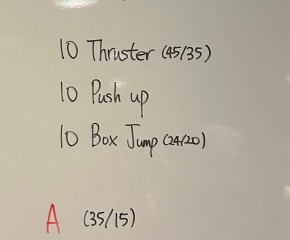 10 Thruster (45/35)
10 Push up
10 Box Jump (24/20)
A (35/15)